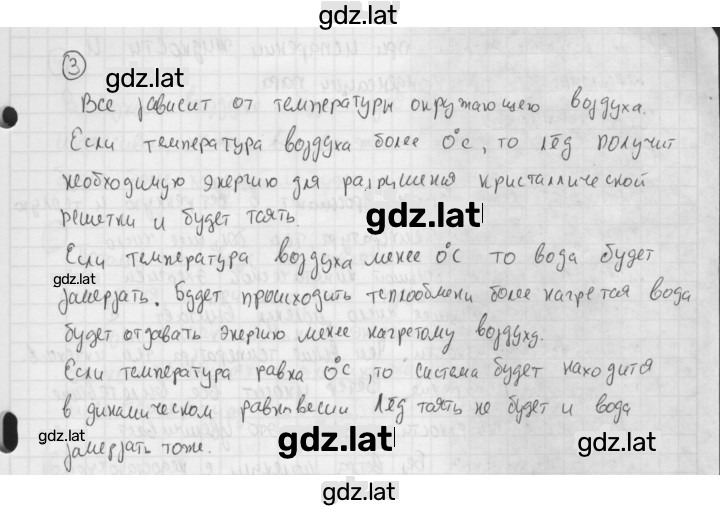 gdz.lat
3
gdz.lat
Все зависит от температуры окружающего воздуха.
Если температура воздуха более 0°с, то лёд получит
необходимую энергию для разрушения кристаллической
решетки и будет таять.
gdz.lat
Если температура воздуха менее 0°с то вода будет
gdz.lat
замерзать. Будет происходить теплообмени более нагретая вода
будет отдавать энергию менее нагретому воздуху.
Если температура равна 0°с, то система будет находится
в динамическом равновесии лёд таять не будет и вода
gdz.lat
замерзать тоже.
gdz.lat
gdz.lat
gdz.lat